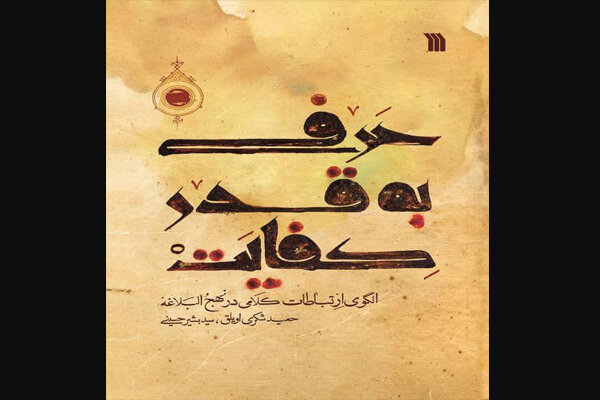 حرفی
به قدر
کفایت
الگوی ارتباطات کلامی در نهج البلاغه
حمید شکری اویلق، سید بشیر حسینی